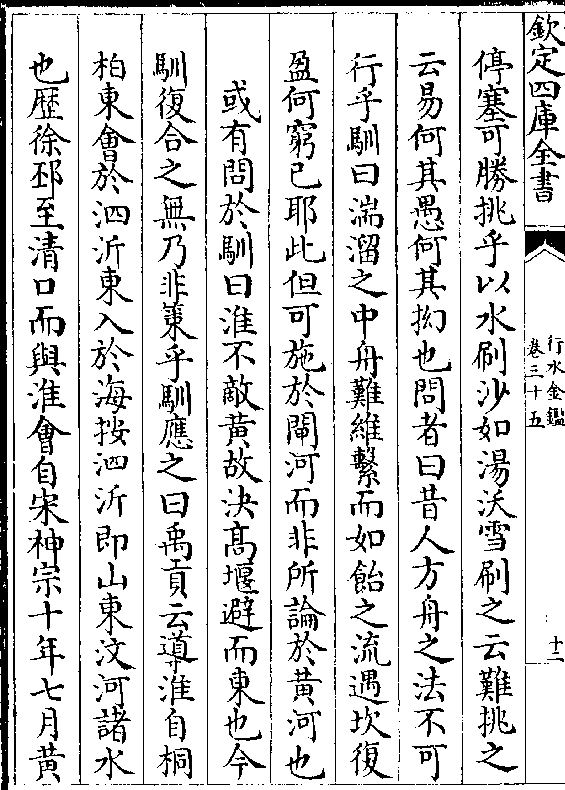 欽定四庫全書
行水金鑑
卷三十五
十二
停塞可勝挑乎以水刷沙如湯沃雪刷之云難挑之
云易何其愚何其拗也問者曰昔人方舟之法不可
行乎馴曰湍溜之中舟難維繫而如飴之流遇坎復
盈何窮已耶此但可施於閘河而非所論於黄河也
或有問於馴曰淮不敵黄故決髙堰避而東也今
馴復合之無乃非策乎馴應之曰禹貢云導淮自桐
柏東會於泗沂東入於海按泗沂即山東汶河諸水
也歴徐邳至清口而與淮會自宋神宗十年七月黄